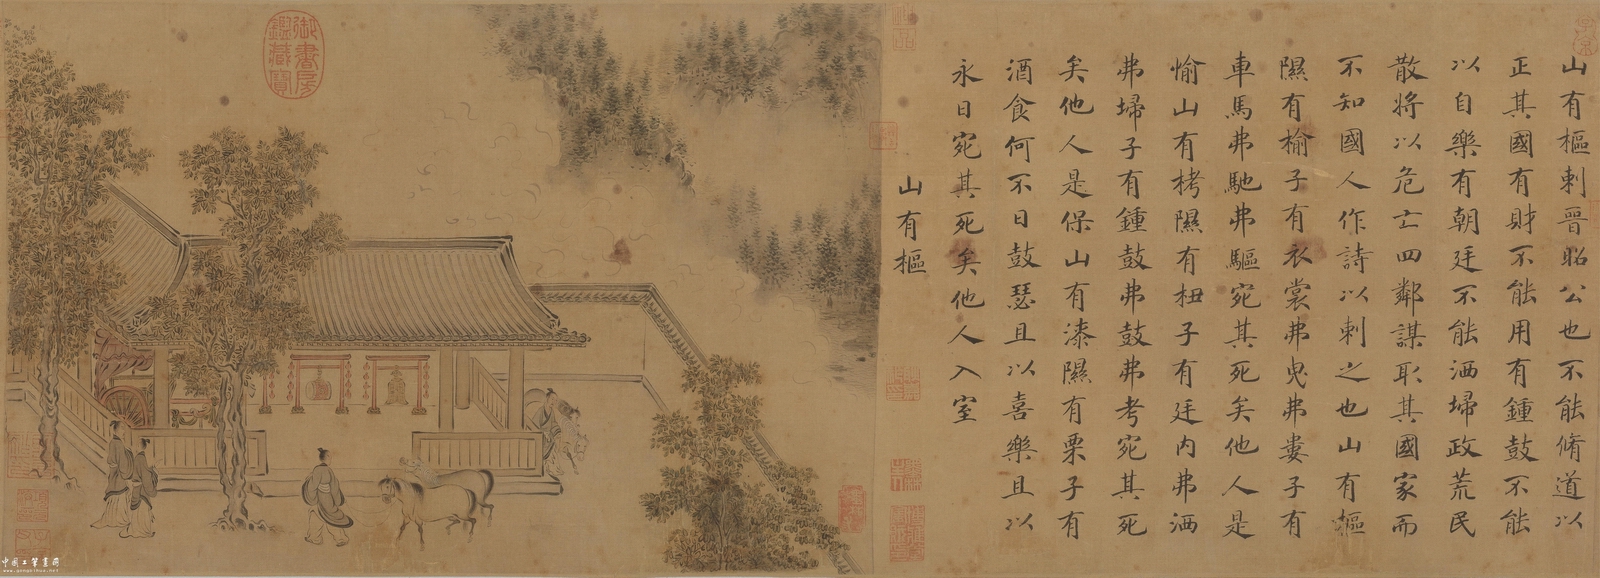 山有樞刺晉昭公也不能脩道以
正其國有財不能用有鍾鼓不能
以自樂有朝廷不能洒埽政荒民
散將以危亡四鄰謀取其國家而
不知國人作詩以刺之也山有樞
隰有榆子有衣裳弗曳弗婁子有
車馬弗馳弗驅宛其死矣他人是
愉山有栲隰有杻子有廷內弗洒
弗埽子有鍾鼓弗鼓弗考宛其死
矣他人是保山有漆隰有栗子有
酒食何不日鼓瑟且以喜樂且以
永日宛其死矣他人入室
山有樞
御書房
鑑藏寶
中国工笔画网
www.gongbihua.net